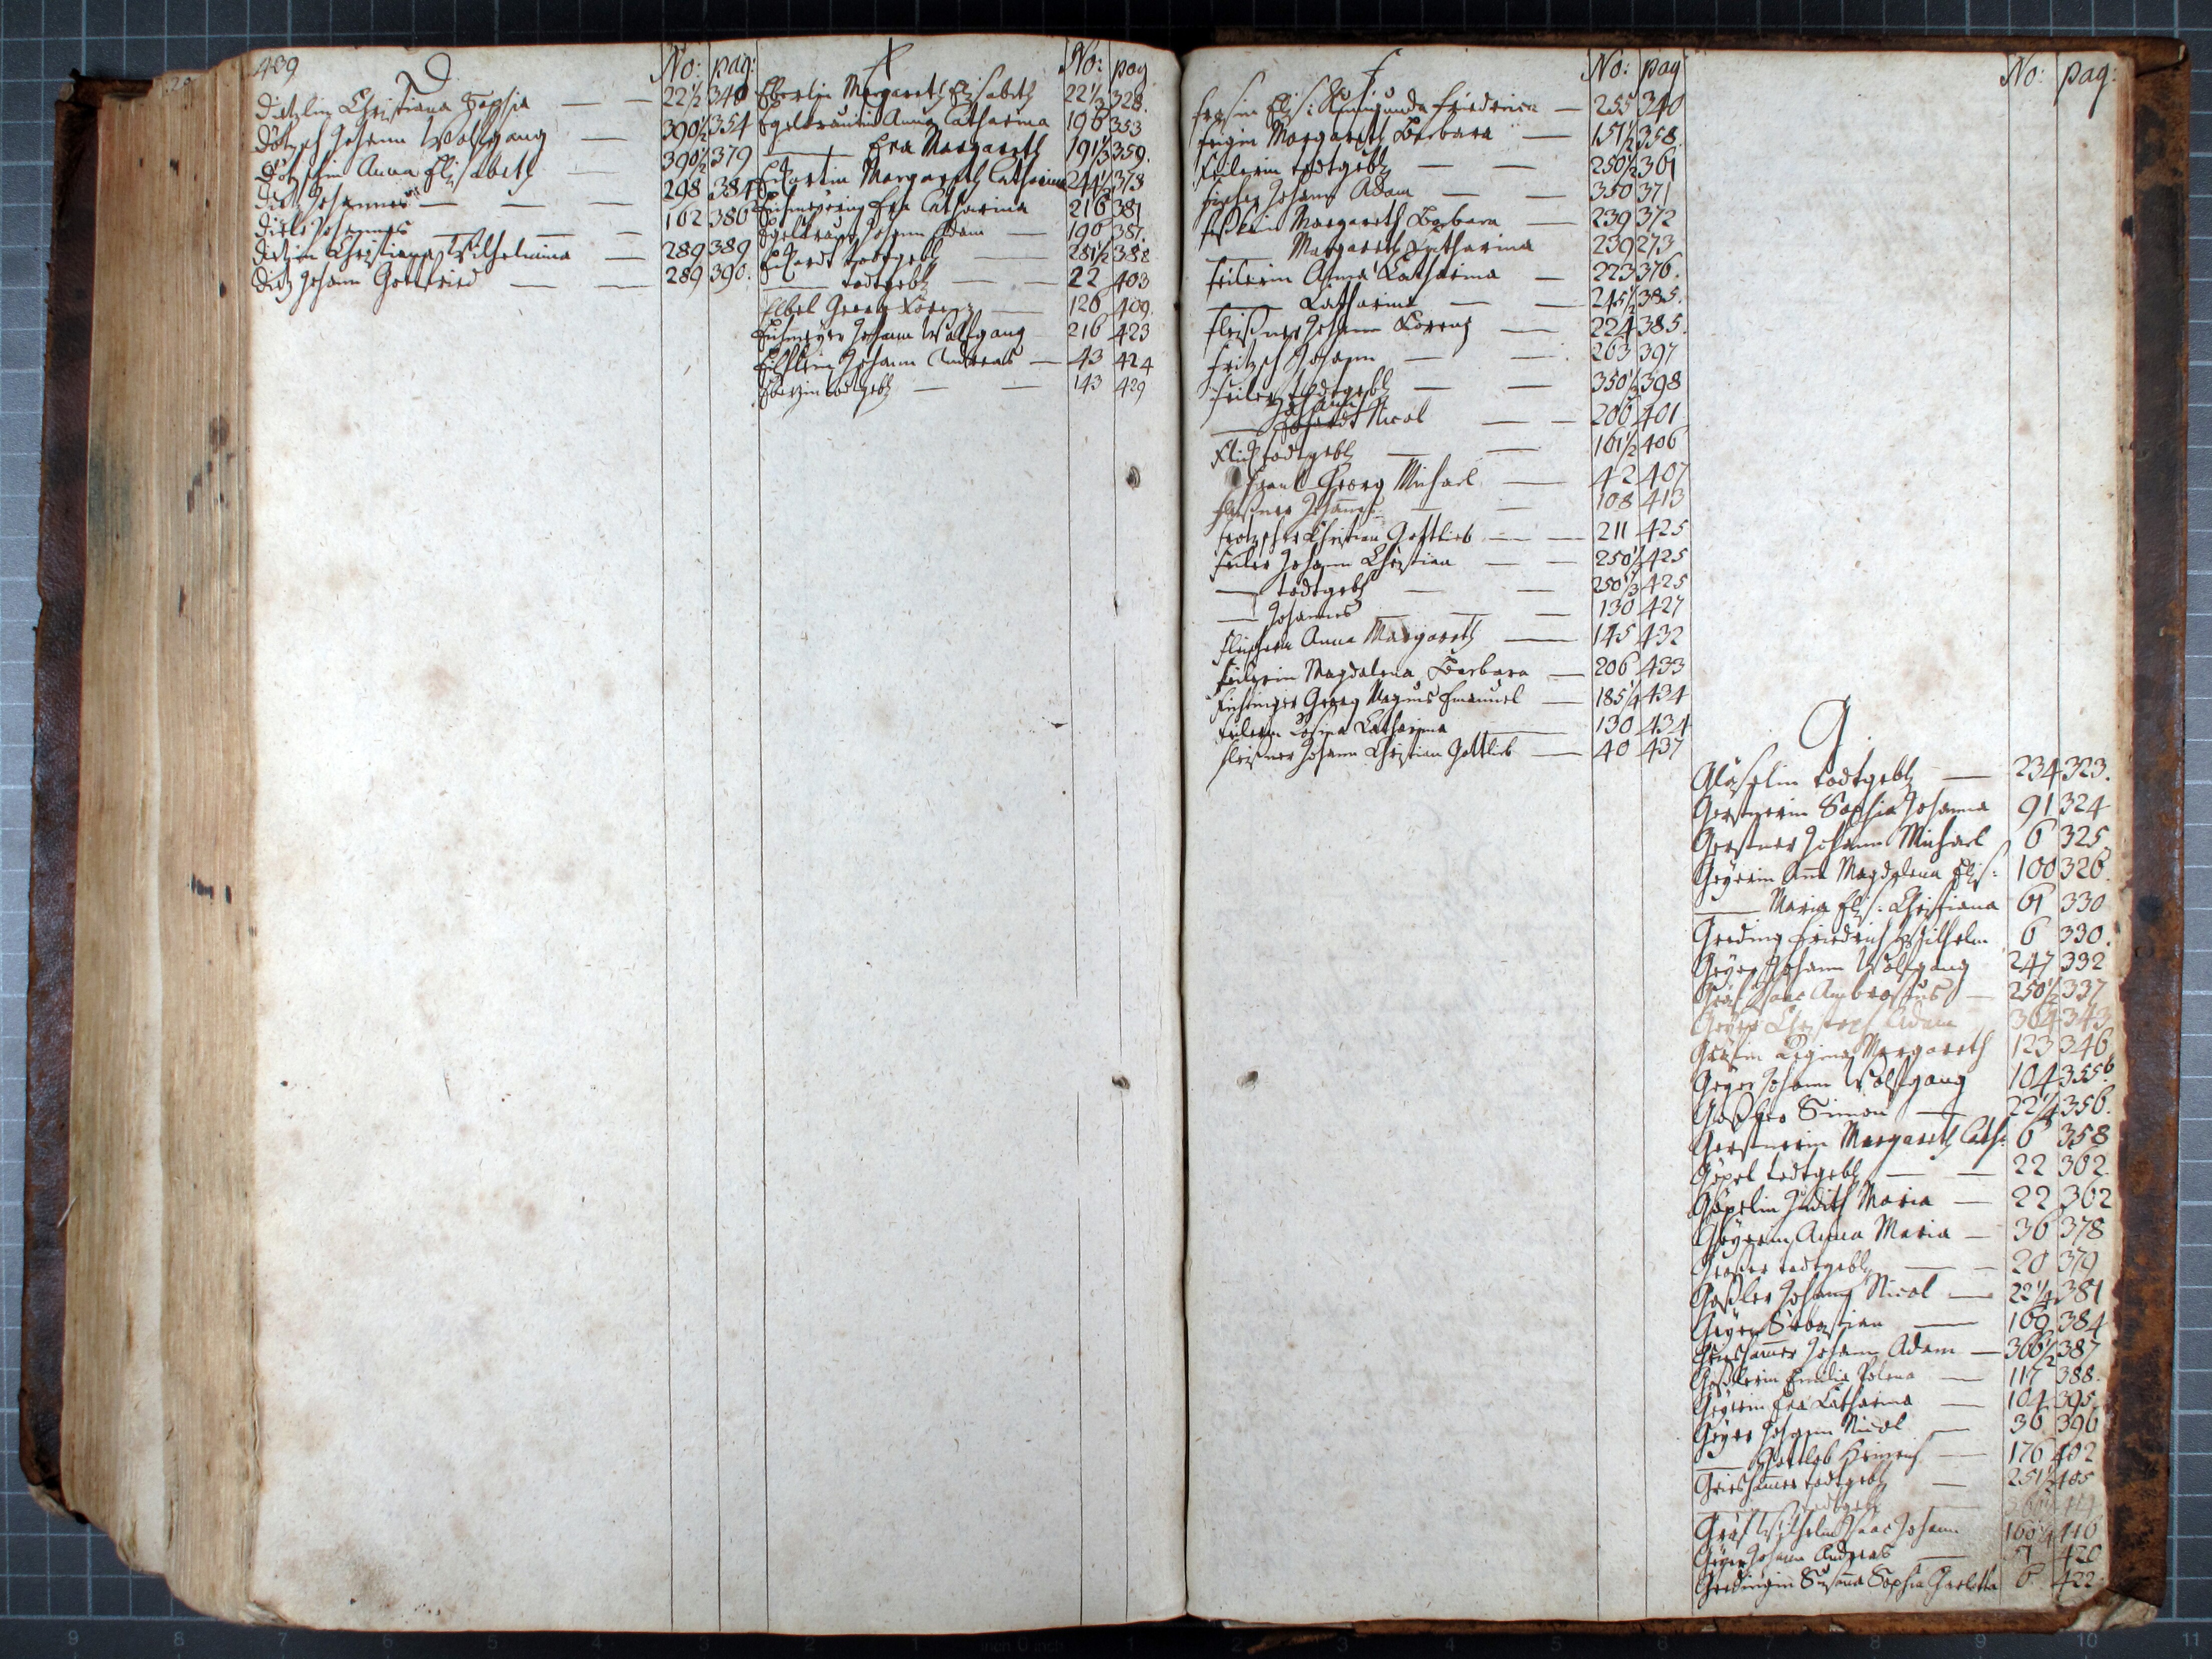 439
D
No: pag:
Dietzlin Christiana Sophia — — 22½ 340
Dötzsch Johann Wolfgang — 390½ 354
Dötzschin Anna Elisabeth — 390½ 379
Dietz Johannes — — — 298 384
Johannes — — 162 386
Dietzin Christiana Wilhelmina — 289 389
Dietz Johann Gottfried — — 289 390.
E
No: pag
Eberlin Margareth Elisabeth 22⅓ 328.
Anna Catharina 196 353
— Eva Margareth 191⅓ 359.
Margareth Catharina 244½ 378
Eva Catharina 216 381
Johann Adam — 196 387.
Eckardt todtgebh — 281½ 388
— todtgebh — — 22 403
Elbel Georg Lorenz — 126 409.
Johann Wolfgang 216 423
Johann Andreas — 43 424
todtgebh — — 143 429
F
No: pag
Elis: Kunigunda Friedrica — 255 340
Margareth Barbara — 151½ 358.
Feilerin todtgebh — — 250½ 361
Fischer Johann Adam — — 350 371
Margareth Barbara — 239 372
— Margareth Catharina 239 273
Feilerin Anna Catharina — 223 376.
— Catharina — — 245½ 385.
Fleißner Johann Lorenz — 224 385.
Fritzsch Johann — — 263 397
Feiler todtgebh — — 350⅓ 398
— Johann Nicol — — 206 401
todtgebh — — 161½ 406
Georg Michael — 42 407
Fleißner Johann — — 108 413
Christian Gottlieb — — 211 425
Feiler Johann Christian — — 250½ 425
— todtgebh — — 250⅓ 425
— Johannes — — — 130 427
Anna Margareth — 145 432
Feilerin Magdalena Barbara — 206 433
Georg Magnus Emanuel — 185¼ 434
Feilerin Rosina Catharina — 130 434
Fleißner Johann Christian Gottlieb — 40 437
No: pag:
G.
Gläselin todtgebh — 234 323.
Gerstnerin Sophia Johanna 91 324
Gerstner Johann Michael 6 325.
Geyerin Anna Magdalena Elis: 100 326.
— Maria Elis: Christiana 61 330
Greding Friedrich Wilhelm 6 330.
Geyer Johann Wolfgang 247 332
Gräf Isaac Ambrosius — 250½ 337
Geyer Christoph Adam 304 343
Gräfin Regina Margareth 123 346
Geyer Johann Wolfgang 104 355.b
Goßler Simon — 22¼ 356.
Gerstnerin Margareth Cath: 6 358
Göpel todtgebh — — 22 362.
Göpelin Judith Maria — 22 362
Geyerin Anna Maria — 36 378
todtgebh — — 20 379
Goßler Johann Nicol — 22¼ 381
Geyer Sebastian — 169 384
Grieshamer Johann Adam — 366½ 387
Goßlerin Emilia — 117 388.
Geyerin Eva Catharina — 104 395.
Geyer Johann Nicol — 36 396
— Gottlob Heinrich — 176 402
Grieshamer todtgebh — 251½ 405
— todtgebh —
Gräf Wilhelm Isaac Johann 416
Geyer Johann Andreas — 420
Gredingin Susanna Sophia Charlotta 6 422.